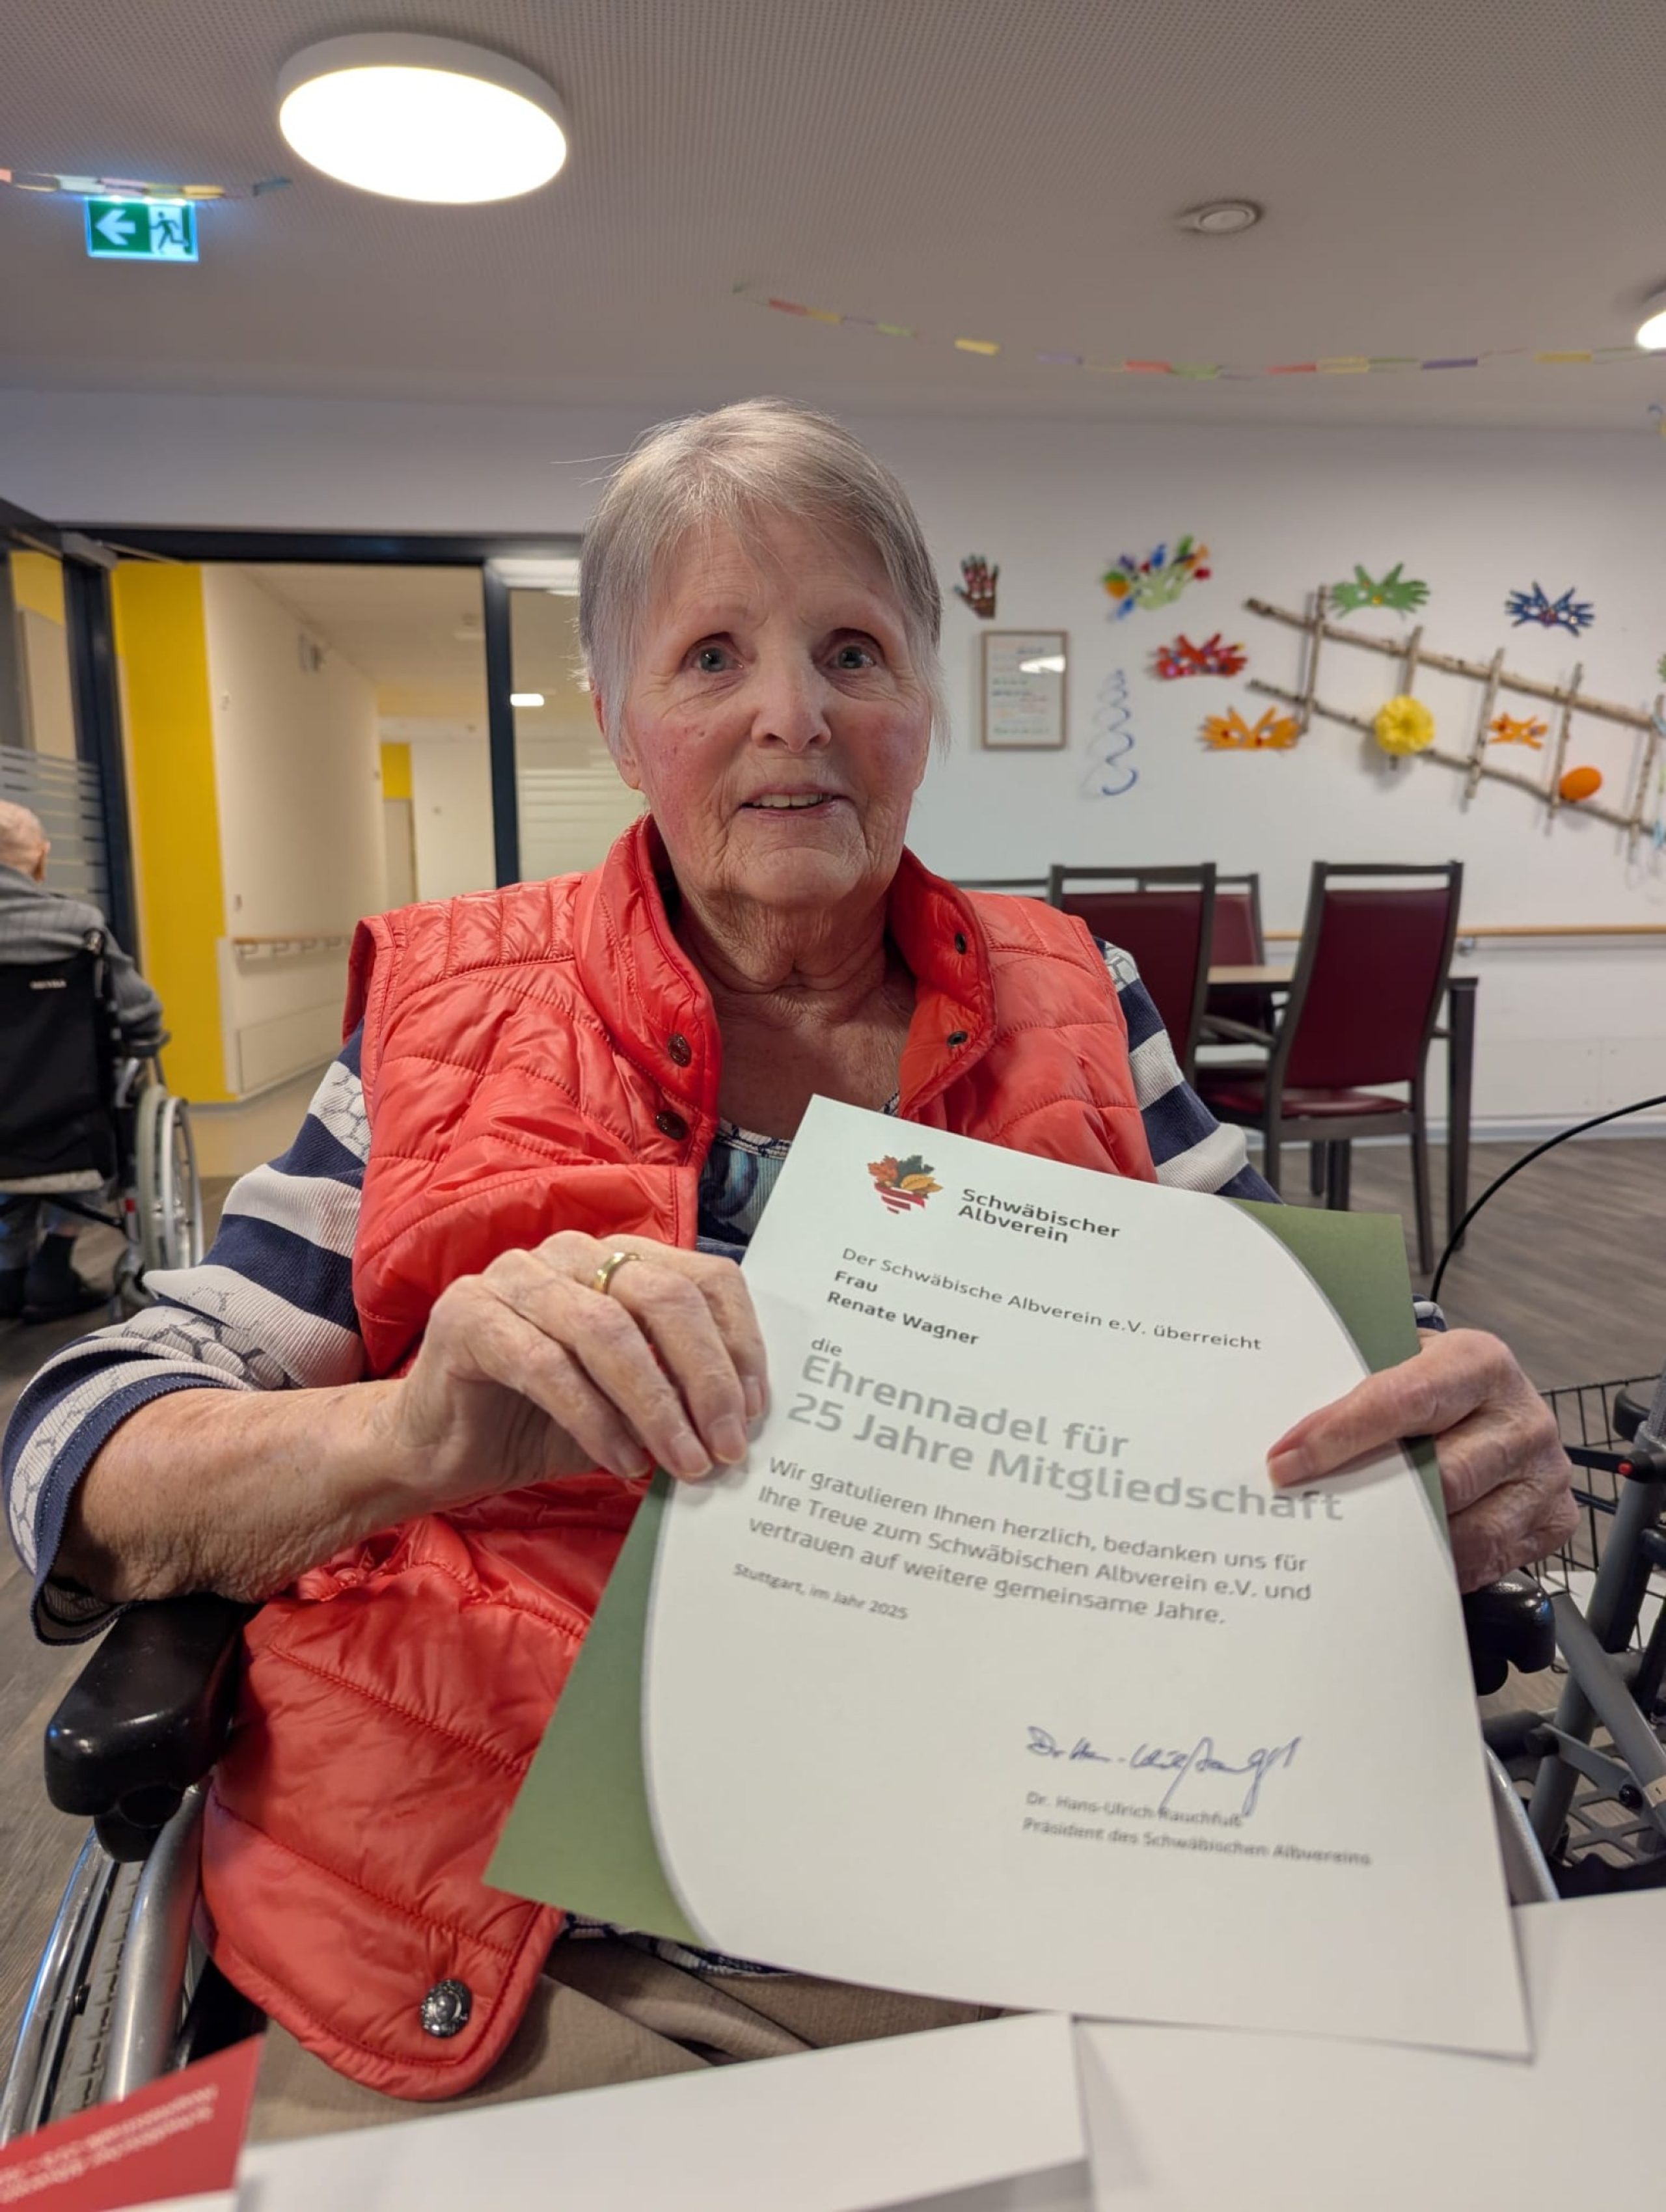 Schwäbischer
Albverein
Der Schwäbische Albverein e.V. überreicht
Frau
Renate Wagner
die
Ehrennadel für
25 Jahre Mitgliedschaft
Wir gratulieren Ihnen herzlich, bedanken uns für
Ihre Treue zum Schwäbischen Albverein e.V. und
vertrauen auf weitere gemeinsame Jahre.
Stuttgart, im Jahr 2025
Dr. Hans-Ulrich Rauchfuß
Präsident des Schwäbischen Albvereins